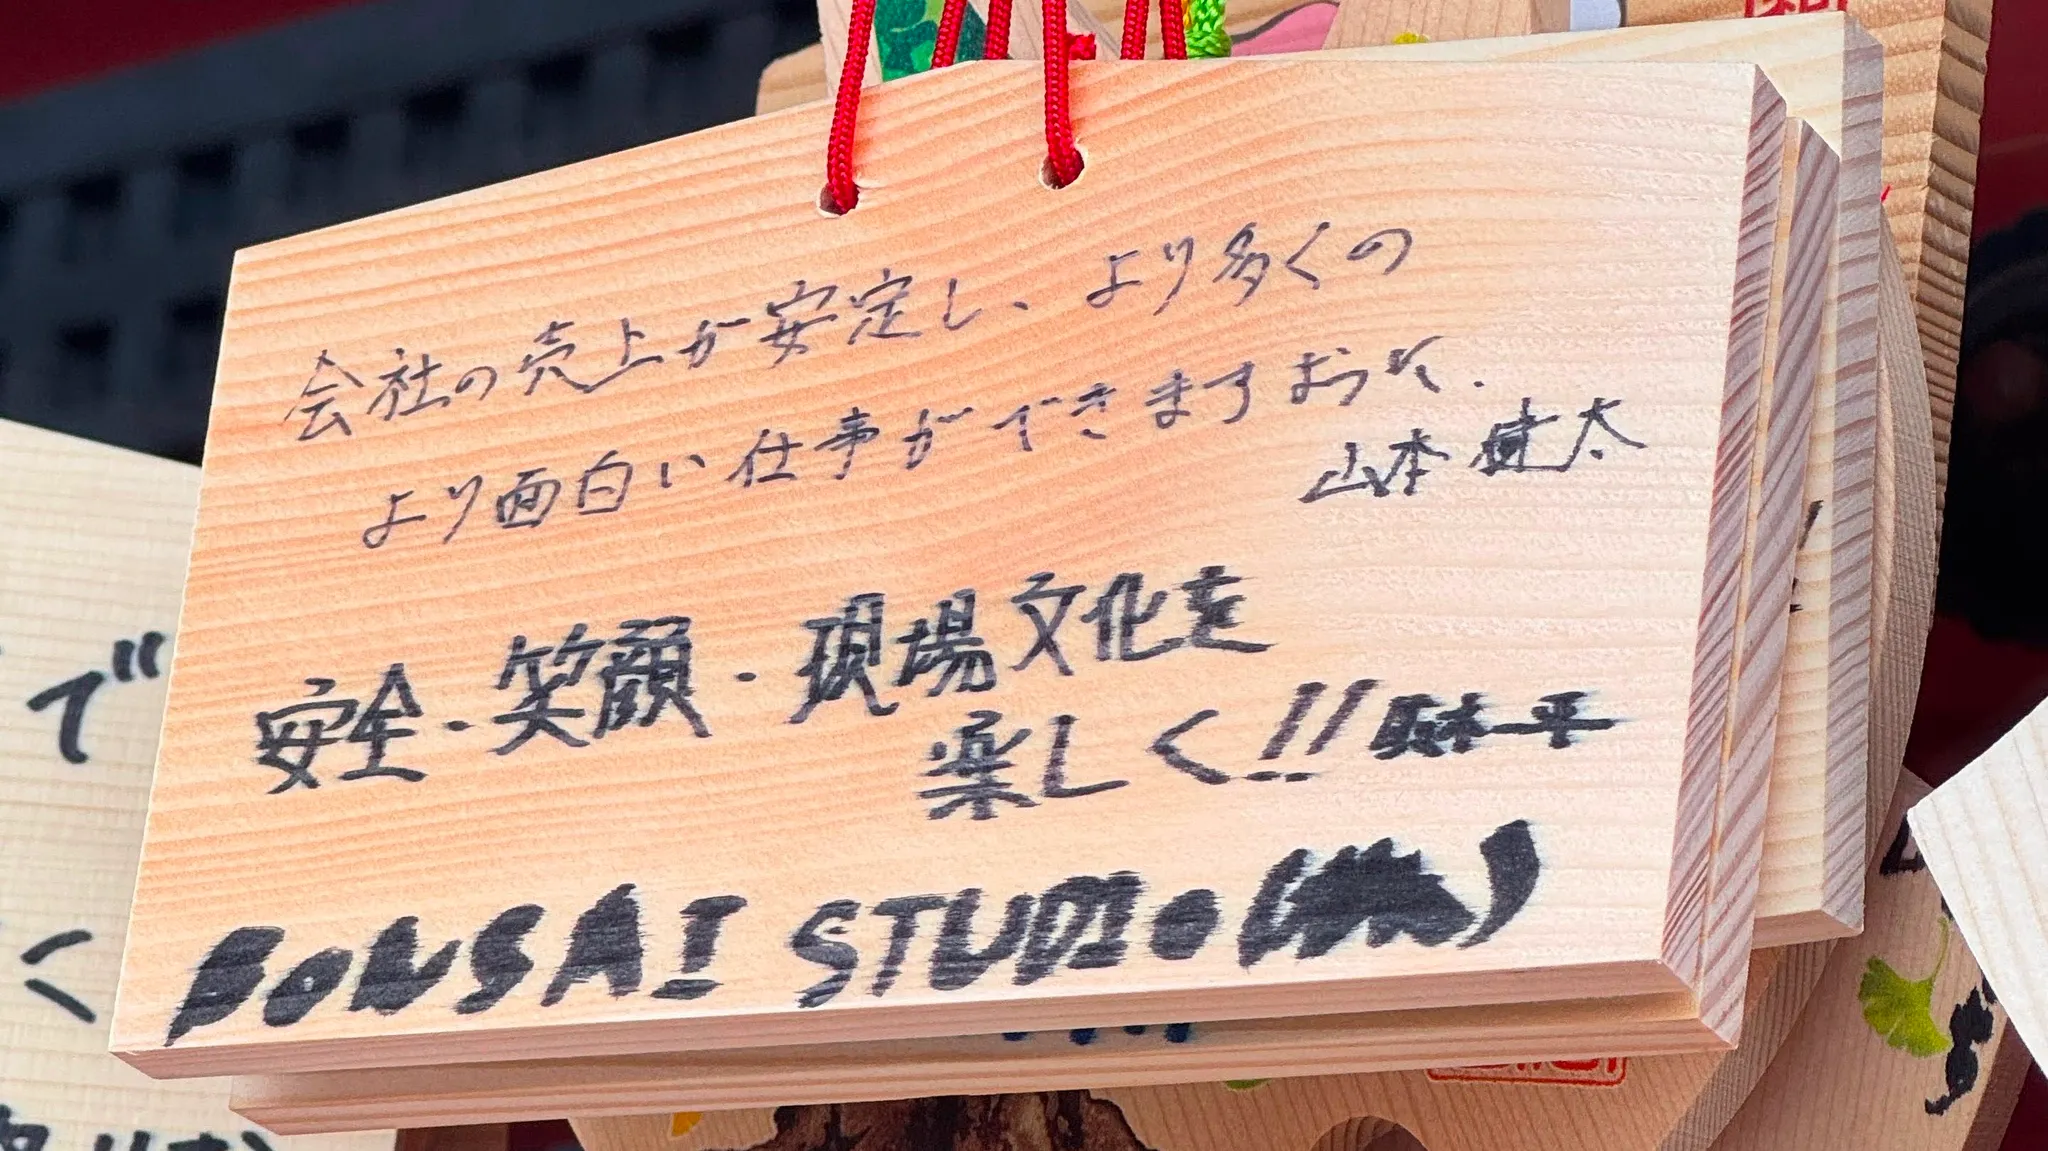 会社の売上が安定し、より多くの
より面白い仕事ができますように.
山本健太
安全・笑顔・現場文化を
楽しく!! 一平
BONSAI STUDIO
で
く